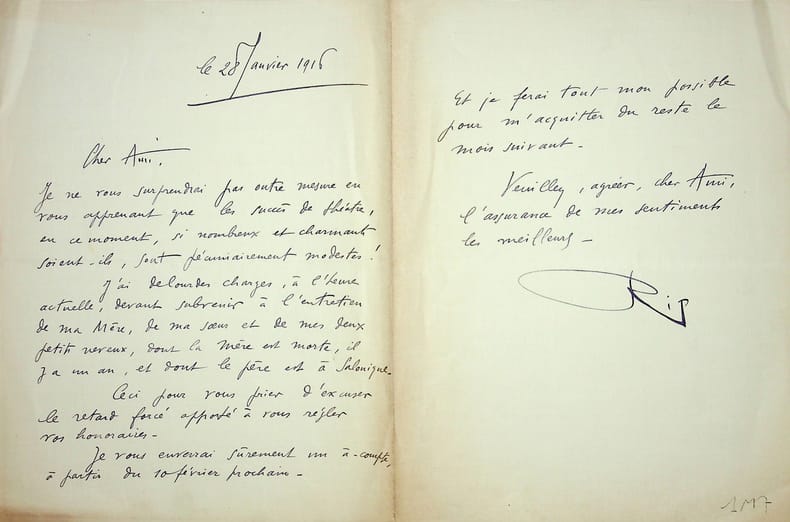 le 28 Janvier 1916
Cher Ami,
Je ne vous surprendrai pas outre mesure en
vous apprenant que les succès de théâtre,
en ce moment, si nombreux et charmants
soient-ils, sont pécuniairement modestes !
J'ai de lourdes charges, à l'heure
actuelle, devant subvenir à l'entretien
de ma Mère, de ma sœur et de mes deux
petits neveux, dont la mère est morte, il
y a un an, et dont le père est à Salonique -
Ceci pour vous prier d'excuser
le retard forcé apporté à vous régler
vos honoraires -
Je vous enverrai sûrement un à-compte,
à partir du 10 février prochain -
Et je ferai tout mon possible
pour m'acquitter du reste le
mois suivant -
Veuillez, agréer, cher Ami,
l'assurance de mes sentiments
les meilleurs -
Rip
1117